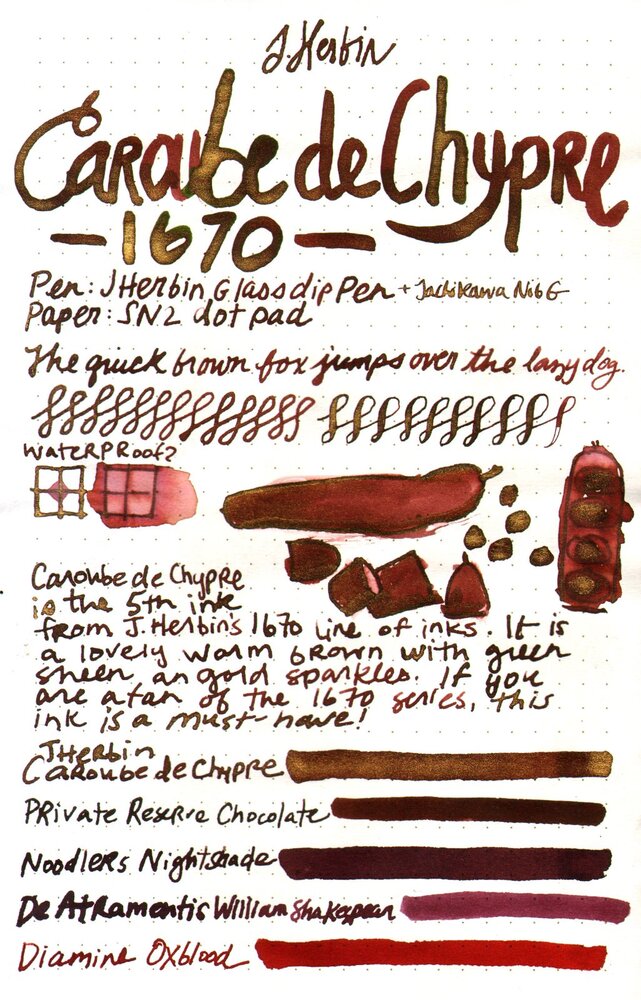 J. Herbin
Caroube de Chypre
- 1670 -
Pen: J Herbin Glass dip Pen + Tachikawa Nib G
Paper: SN2 dot pad
The quick brown fox jumps over the lazy dog.
WaterPRoof?
Caroube de Chypre
is the 5th ink
from J. Herbin's 1670 line of inks. It is
a lovely warm brown with green
sheen an gold sparkles. If you
are a fan of the 1670 series, this
ink is a must-have!
J Herbin
Caroube de Chypre
PRivate Reserve Chocolate
Noodlers Nightshade
De Atramentis William Shakespear
Diamine Oxblood